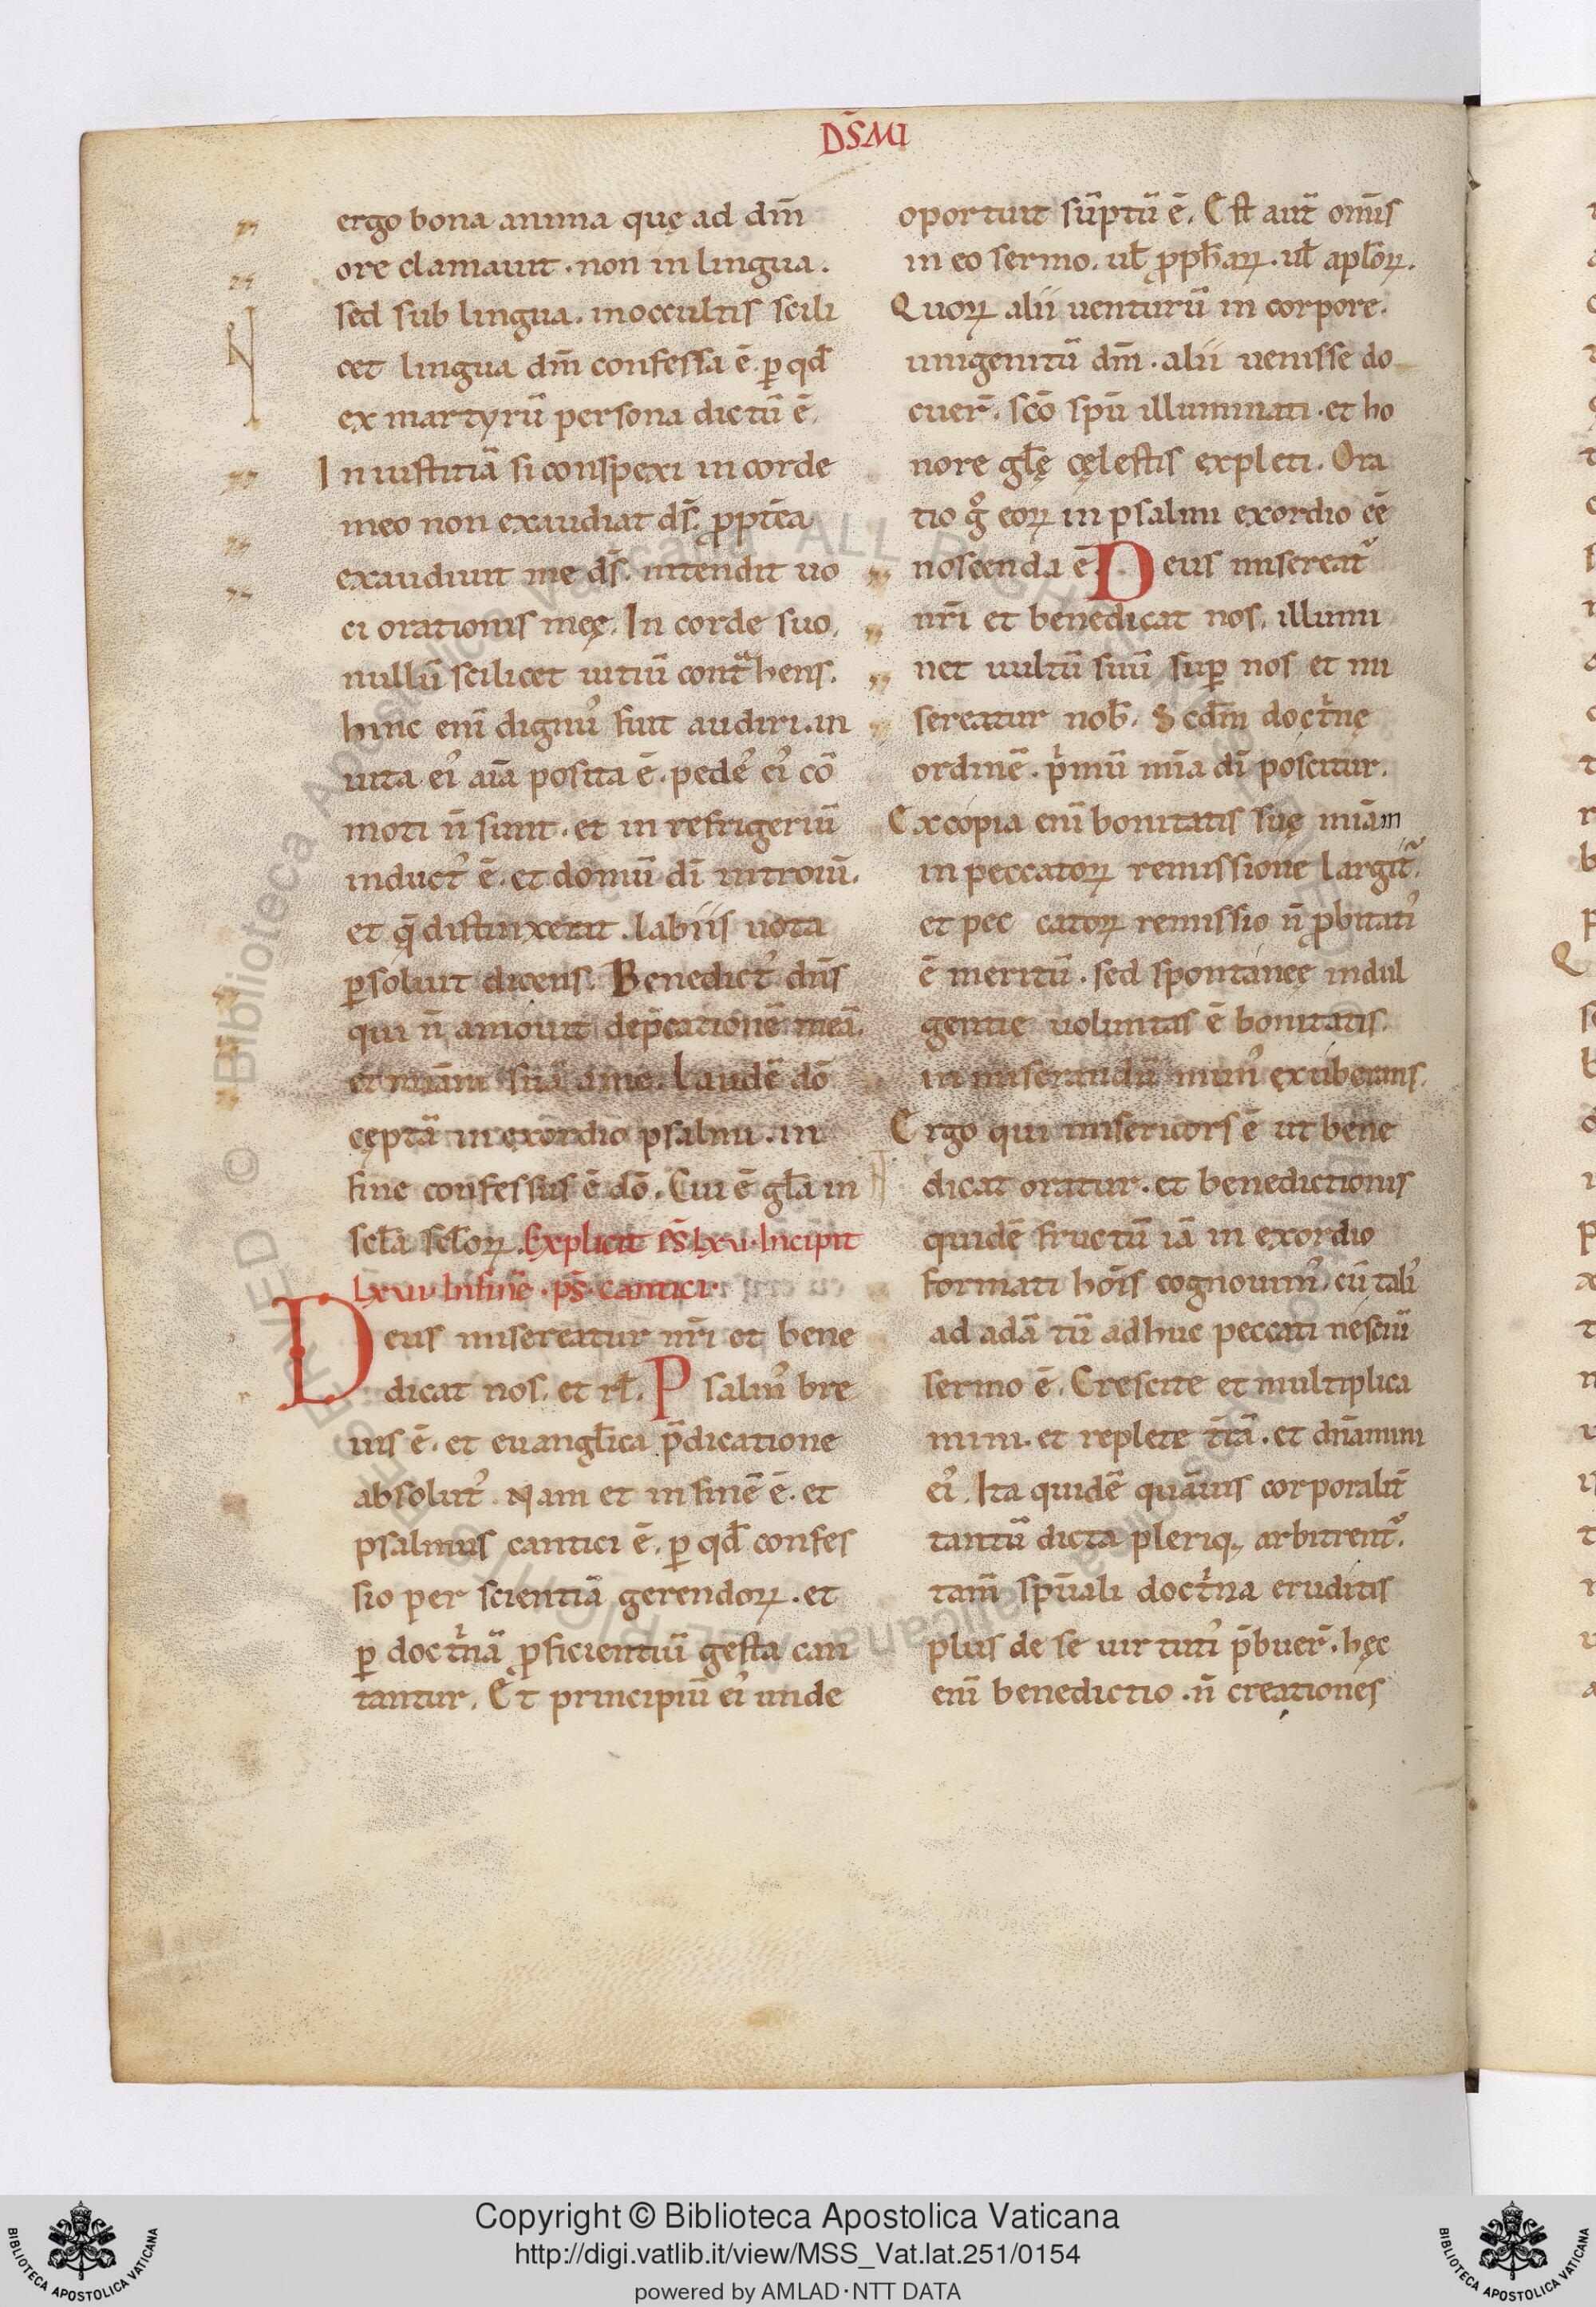 DS̄ MI
ergo bona anima quę ad dm̄
ore clamauit . non in lingua .
sed sub lingua . in occultis scili
cet lingua dm̄ confessa ē . ꝑ qđ
ex martyrū persona dictū ē .
In iustitiā si conspexi in corde
meo non exaudiat ds̄ . ꝓptēa
exaudiuit me ds̄ . intendit uo
ci orationis męę . In corde suo .
nullū scilicet uitiū contͣhens .
hinc enī dignuꝰ fuit audiri . in
uita eiꝰ aīa posita ē . pedeꝰ eiꝰ cō
moti n̄ sunt . et in refrigeriū
inductꝰ ē . et domū dī introiuī .
et q̄ distinxerat . labiis uota
ꝑsoluit dicens . Benedictꝰ dn̄s
qui n̄ amouit dep̄cationē meā .
et mīam suā a me . Laudē dō
cęptā in exordio psalmi . in
fine confessus ē dō . Cui ē gl̄a in
scl̄a scl̄oꝝ . Explicit PS̄ lxv . Incipit
lxvi . In finē . ps̄ . cantici .
Deus misereatur nr̄i et bene
dicat nos . et rl̄ . Psalmꝰ bre
uis ē . et euangl̄ica p̄dicatione
absolutꝰ . Nam et in finē ē . et
psalmus cantici ē . ꝑ qđ confes
sio per scientiā gerendoꝝ . et
ꝑ doctͥnā ꝓficientiū gesta can
tantur . Et principiū eiꝰ unde
oportuit sūptū ē . Est aut̄ omīs
in eo sermo . ul̄ ꝓpħaꝝ . ul̄ apl̄oꝝ .
Quoꝝ alii uenturū in corpore .
unigenitū dm̄ . alii uenisse do
cuer̄ . scō spū illuminati . et ho
nore gl̄ę cęlestis expleti . Ora
tio gͦ eoꝝ in psalmi exordio eē
noscenda ē . Deus misereat᷑
nr̄i et benedicat nos . illumi
net uultū suū suꝑ nos et mi
sereatur nob̄ . Scd̄m doctͥnę
ordinē . pͥmū mīa dī poscitur .
Ex copia enī bonitatis suę mīam
in peccatoꝝ remissione largit᷑ .
et pec catoꝝ remissio n̄ ꝓbitatiꝰ
ē meritū . sed spontanęę indul
gentię uoluntas ē bonitatis .
in miserandū munꝰ exuberans .
Ergo qui misericors ē ut bene
dicat oratur . et benedictionis
quidē fructū iā in exordio
formati hoīs cognouimꝰ . cū taliꝰ
ad adā tū adhuc peccati nesciū
sermo ē . Crescite et multiplica
mini . et replete tr̄ā . et dn̄amini
eiꝰ . Ita quidē quāuis corporalit̄
tantū dicta pleriq; arbitrent᷑ .
tam̄ spūali doctͥna eruditis
plus de se uir tutiꝰ p̄buer̄ . hęc
enī benedictio . n̄ creationes
Copyright © Biblioteca Apostolica Vaticana
http://digi.vatlib.it/view/MSS_Vat.lat.251/0154
powered by AMLAD·NTT DATA